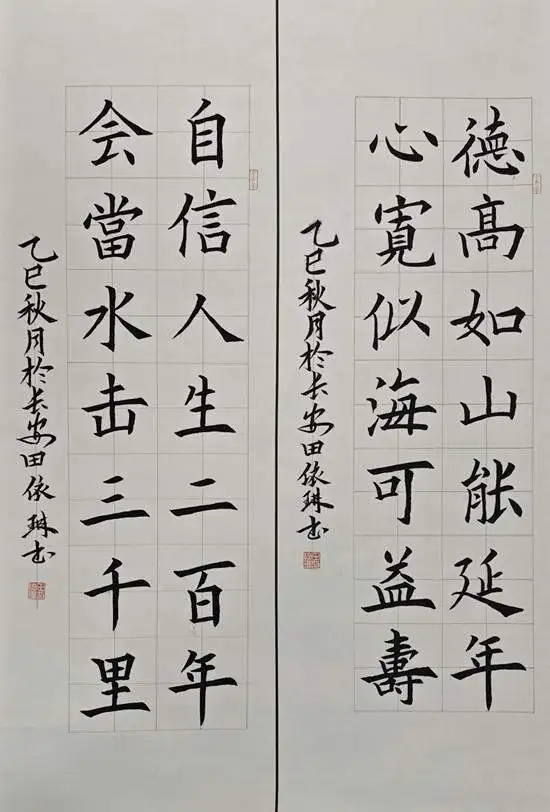 德高如山能延年
心寬似海可益壽
乙巳秋月於长安田依琳书
自信人生二百年
会當水击三千里
乙巳秋月於长安田依琳书